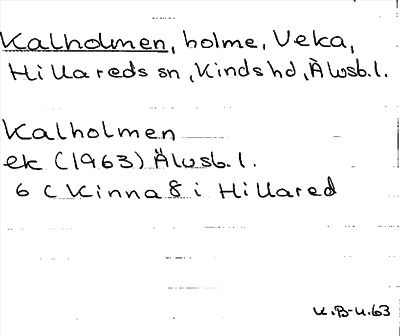 Kalholmen, holme, Veka,
Hillareds sn, Kinds hd, Älvsb. l.
Kalholmen
ek (1963) Älvsb. l.
6 C Kinna 8 i Hillared
U.B-U.63